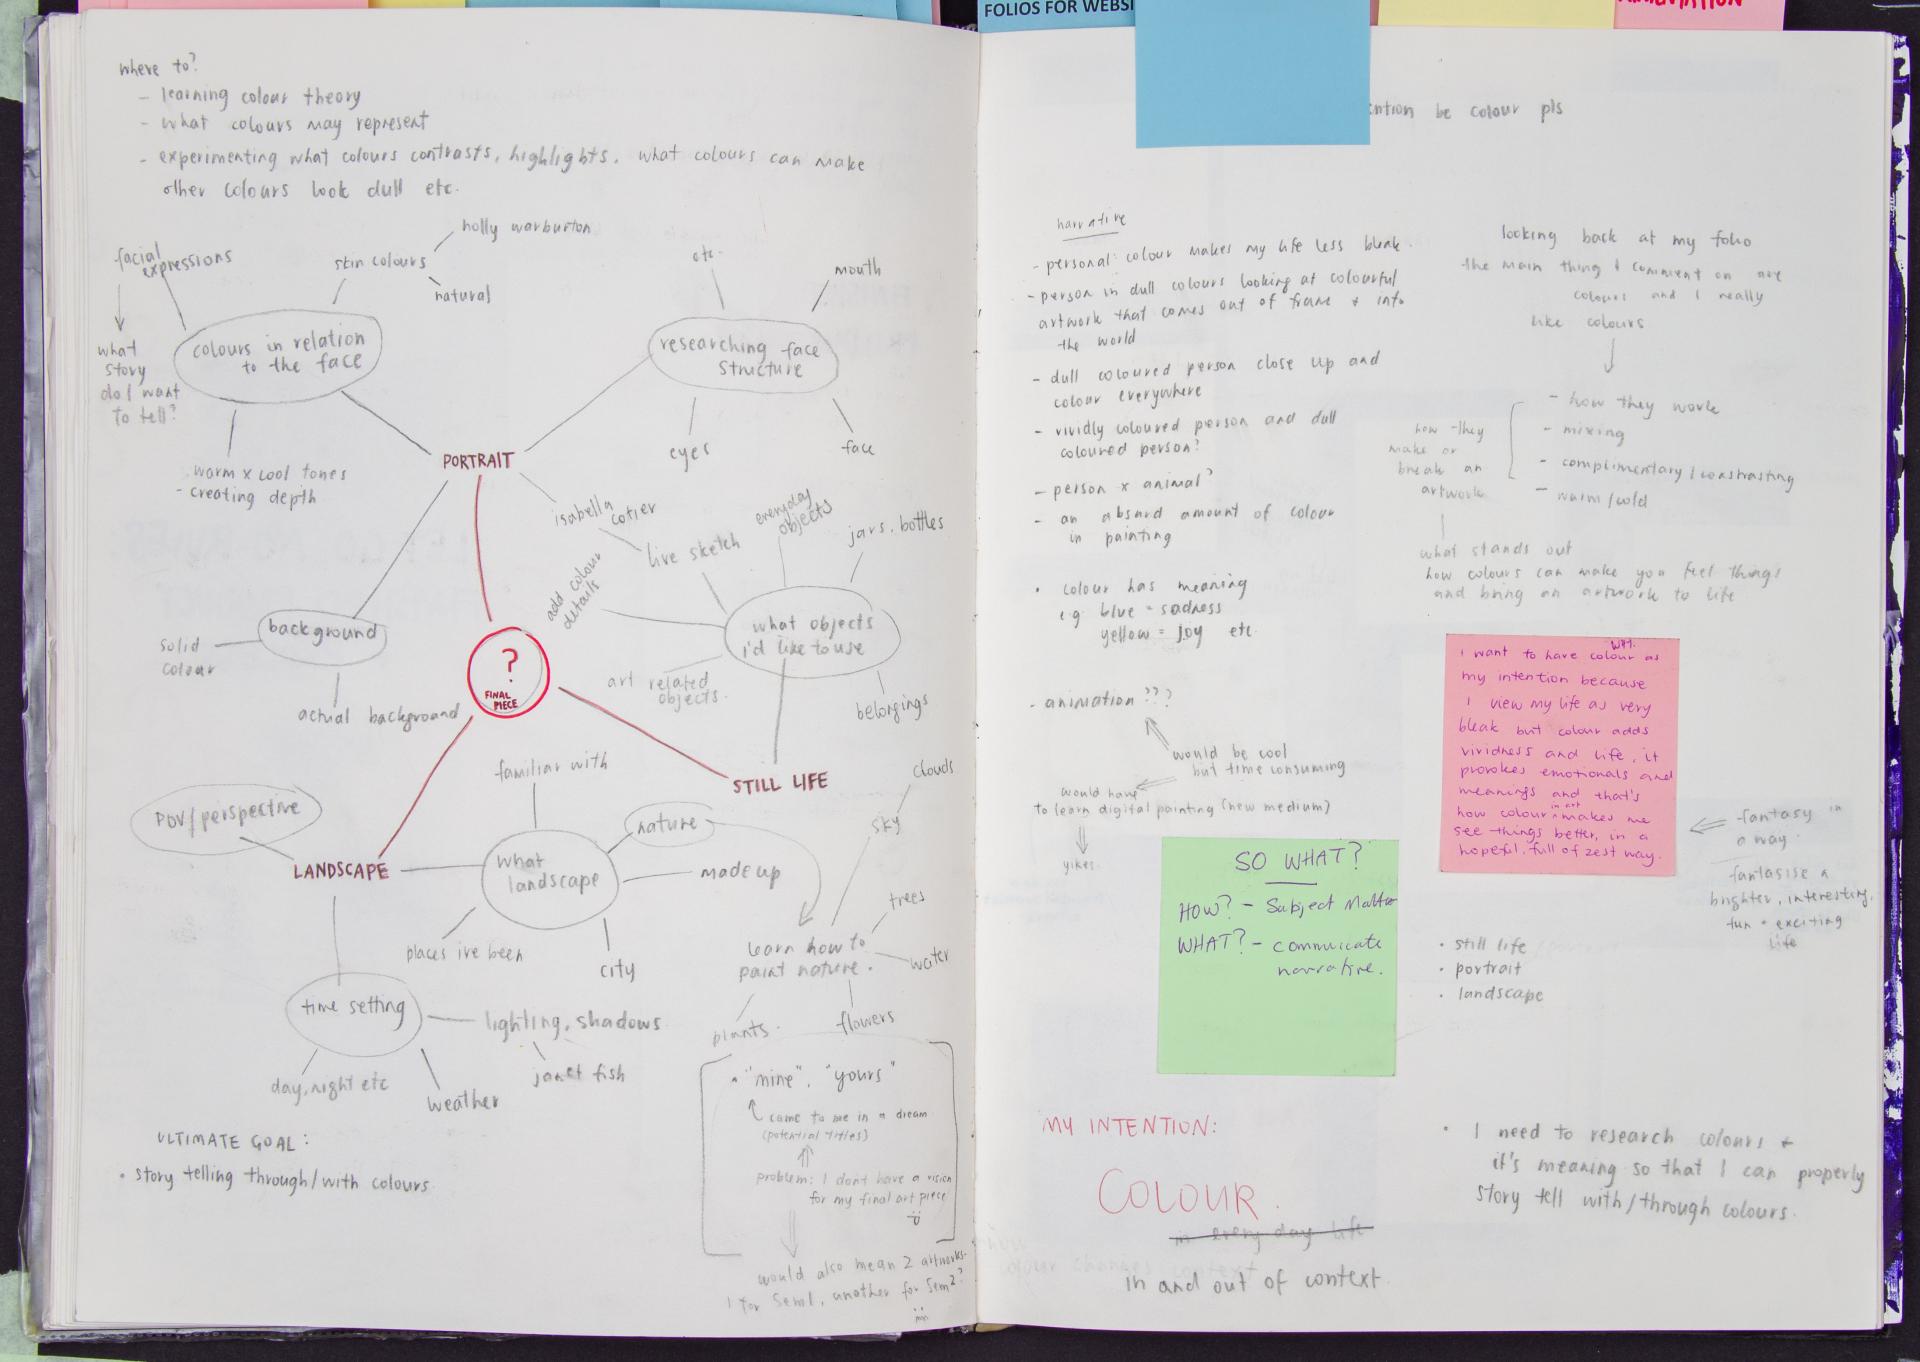 FOLIOS FOR WEBSI
where to?
- learning colour theory
- what colours may represent
- experimenting what colours contrasts, highlights, what colours can make
other colours look dull etc.
facial
expressions
what
story
do I want
to tell?
skin colours
holly warburton
natural
colours in relation
to the face
warm x cool tones
- creating depth
etc.
mouth
researching face
structure
eyes
face
PORTRAIT
isabella
cotier
live sketch
everyday
objects
jars, bottles
add colour
details
what objects
i'd like to use
art related
objects.
belongings
background
solid
colour
actual background
?
FINAL
PIECE
STILL LIFE
POV/perspective
LANDSCAPE
familiar with
what
landscape
nature
made up
places ive been
city
clouds
sky
trees
learn how to
paint nature.
water
plants.
flowers
time setting
lighting, shadows
janet fish
day, night etc
weather
ULTIMATE GOAL:
• story telling through/with colours
• "mine", "yours"
came to me in a dream
(potential titles)
problem: I dont have a vision
for my final art piece
would also mean 2 artworks-
1 for Sem1, another for Sem2?
ntion be colour pls
narrative
- personal: colour makes my life less bleak.
- person in dull colours looking at colourful
artwork that comes out of frame + into
the world
- dull coloured person close up and
colour everywhere
- vividly coloured person and dull
coloured person?
- person x animal?
- an absurd amount of colour
in painting
• colour has meaning
e.g. blue = sadness
yellow = joy etc.
- animation ???
would be cool
but time consuming
would have
to learn digital painting (new medium)
yikes.
looking back at my folio
the main thing I comment on are
colours and I really
like colours
- how they work
- mixing
- complimentary/constrasting
- warm/cold
how they
make or
break an
artwork
what stands out
how colours can make you feel things
and bring an artwork to life
WHY.
I want to have colour as
my intention because
I view my life as very
bleak but colour adds
vividness and life, it
provokes emotionals and
meanings and that's
how colour in art makes me
see things better, in a
hopeful, full of zest way.
fantasy in
a way.
fantasise a
brighter, interesting,
fun + exciting
life
SO WHAT?
HOW? - Subject Matter
WHAT? - commuicate
narrative.
• still life
• portrait
• landscape
MY INTENTION:
COLOUR.
in every day life
in and out of context
• I need to research colours +
it's meaning so that I can properly
story tell with/through colours.